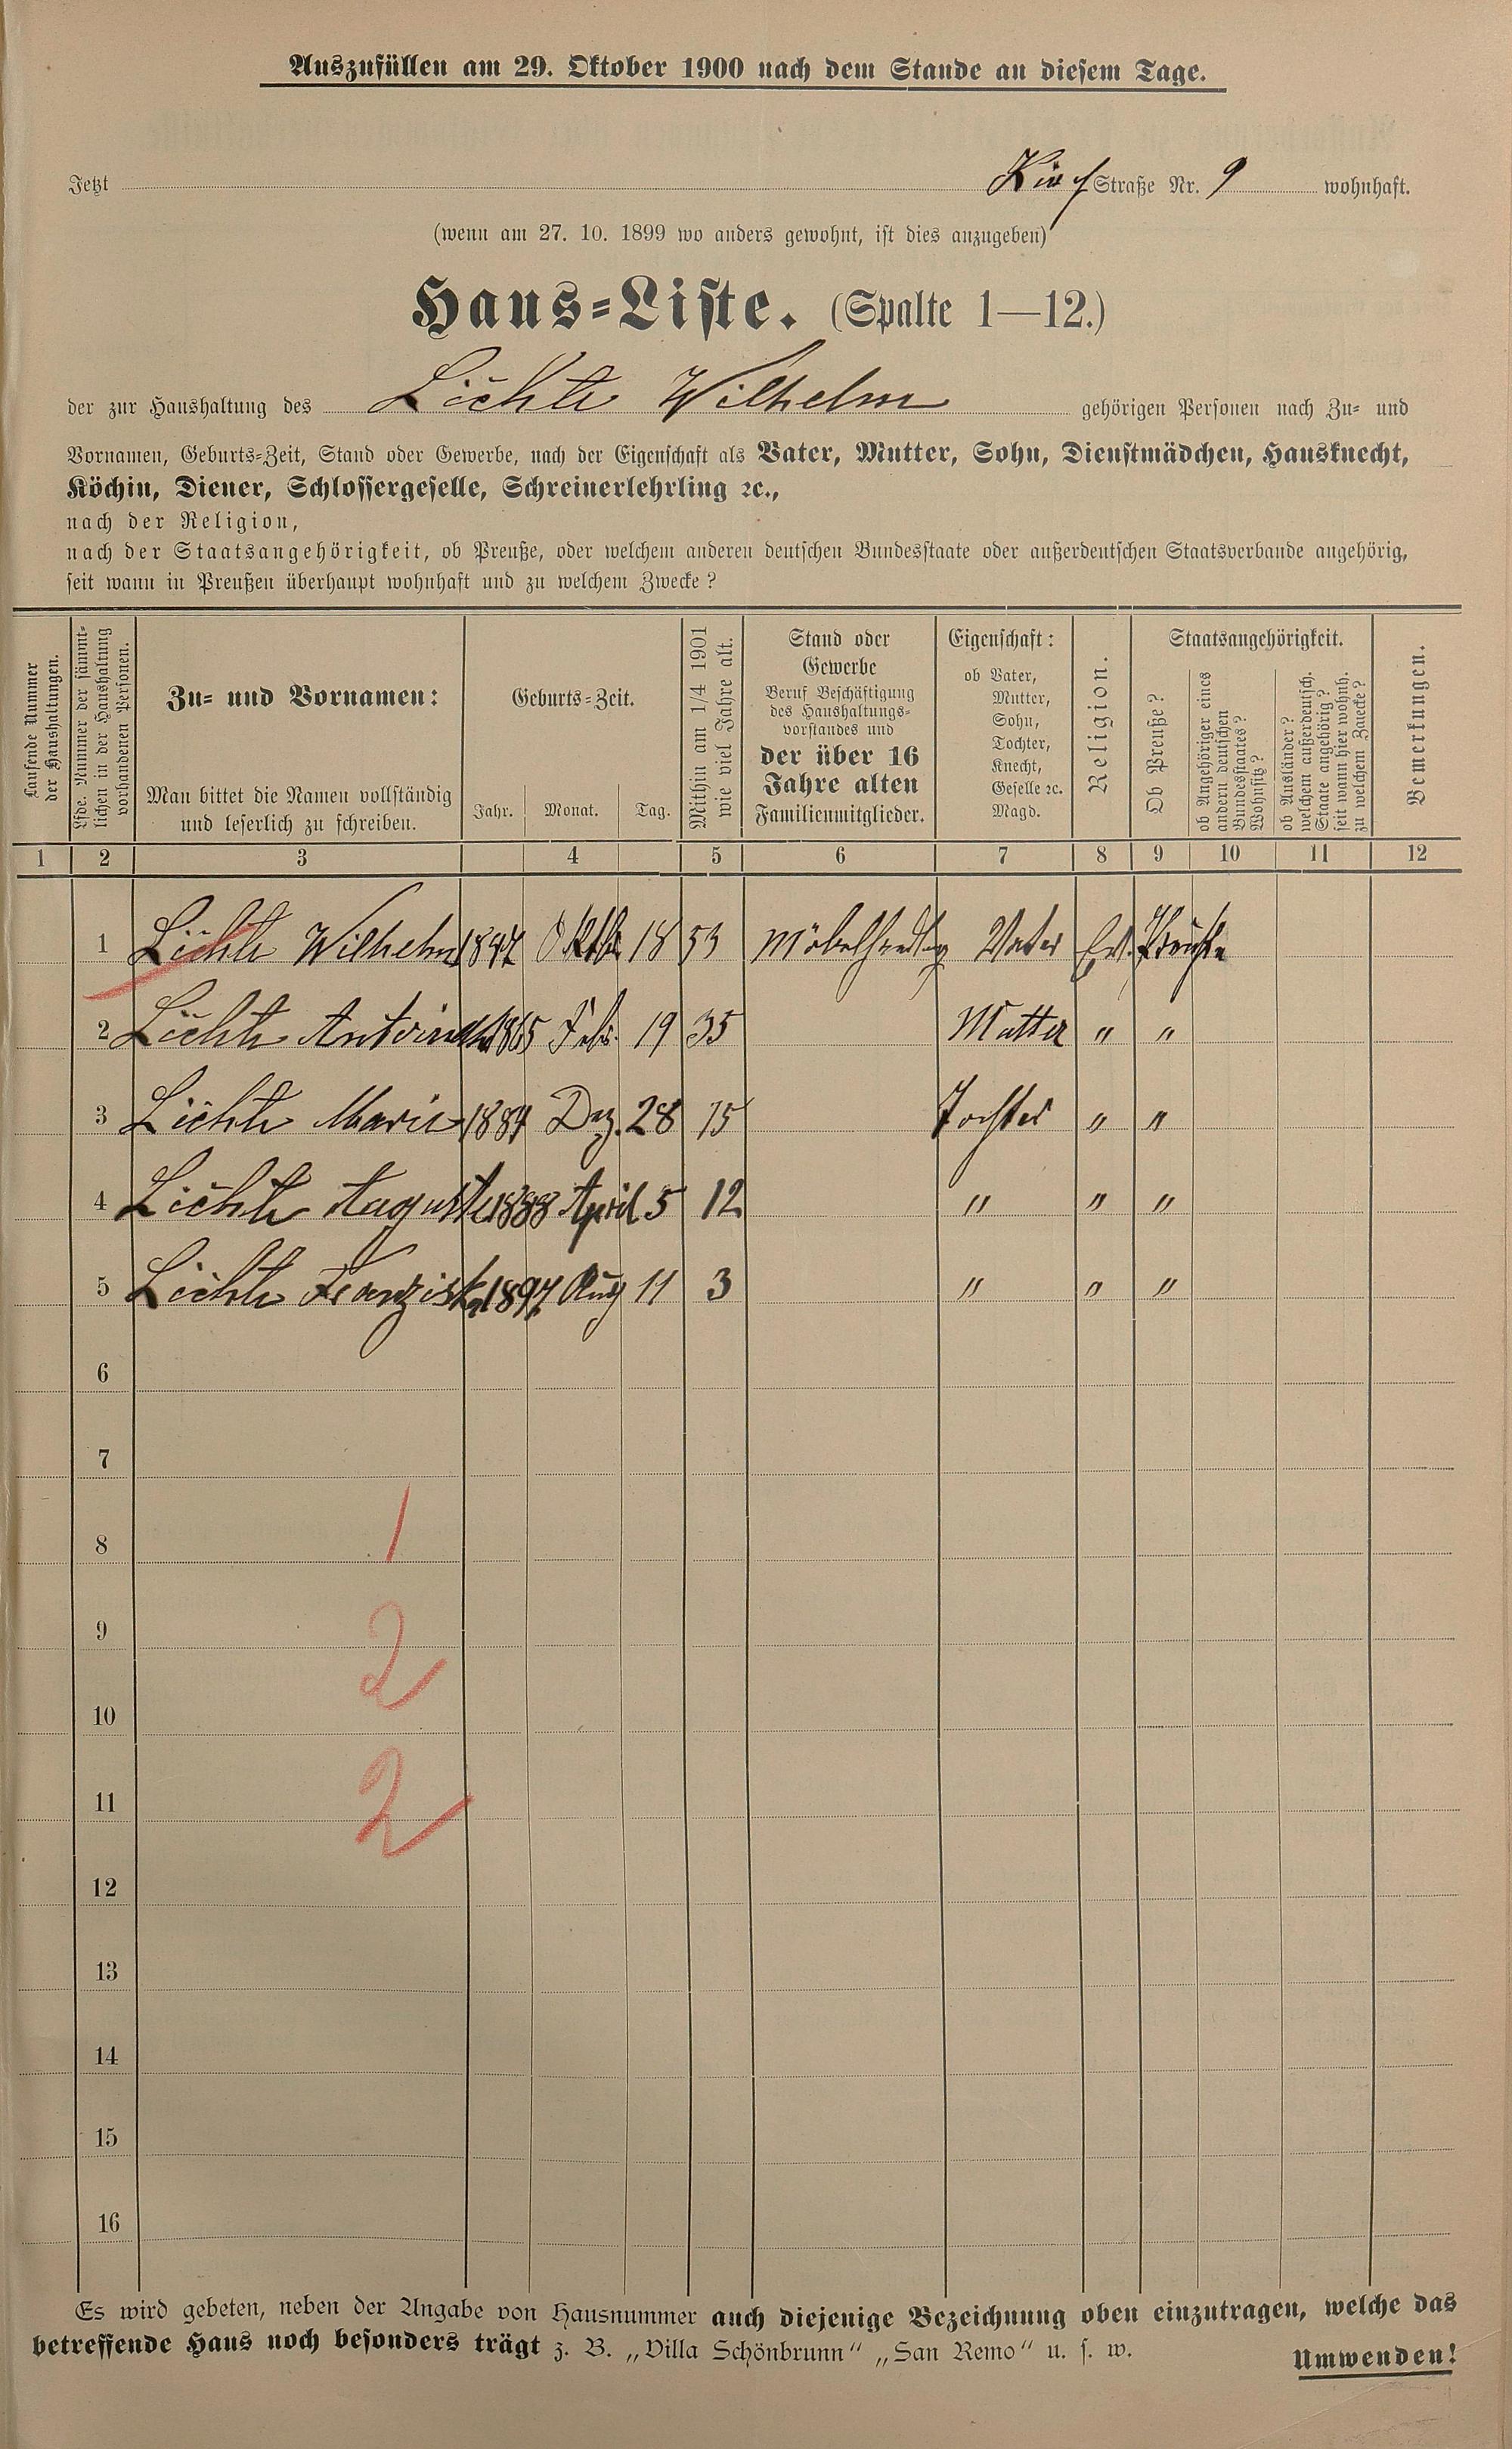 Auszufüllen am 29. Oktober 1900 nach dem Stande an diesem Tage.
Jetzt Straße Nr. 9 wohnhaft.
(wenn am 27. 10. 1899 wo anders gewohnt, ist dies anzugeben)
Haus-Liste. (Spalte 1—12.)
der zur Haushaltung des Lichte Wilhelm gehörigen Personen nach Zu- und
Vornamen, Geburts-Zeit, Stand oder Gewerbe, nach der Eigenschaft als Vater, Mutter, Sohn, Dienstmädchen, Hausknecht,
Köchin, Diener, Schlossergeselle, Schreinerlehrling ꝛc.,
nach der Religion,
nach der Staatsangehörigkeit, ob Preuße, oder welchem anderen deutschen Bundesstaate oder außerdeutschen Staatsverbande angehörig,
seit wann in Preußen überhaupt wohnhaft und zu welchem Zwecke?
Laufende Nummer
der Haushaltungen.
Lfde. Nummer der sämmt-
lichen in der Haushaltung
vorhandenen Personen.
Zu- und Vornamen:
Man bittet die Namen vollständig
und leserlich zu schreiben.
Geburts-Zeit.
Jahr. Monat. Tag.
Mithin am 1/4 1901
wie viel Jahre alt.
Stand oder
Gewerbe
Beruf Beschäftigung
des Haushaltungs-
vorstandes und
der über 16
Jahre alten
Familienmitglieder.
Eigenschaft:
ob Vater,
Mutter,
Sohn,
Tochter,
Knecht,
Geselle ꝛc.
Magd.
Religion.
Staatsangehörigkeit.
Ob Preuße?
ob Angehöriger eines
andern deutschen
Bundesstaates?
Wohnsitz?
ob Ausländer?
welchem außerdeutsch.
Staate angehörig?
seit wann hier wohnh.
zu welchem Zwecke?
Bemerkungen.
1 2 3 4 5 6 7 8 9 10 11 12
1 Lichte Wilhelm 1847 Oktb. 18 53 Möbelhandlg Vater Ev. Preuße
2 Lichte 1865 Feb. 19 35 Mutter " "
3 Lichte Marie 1884 Dez. 28 15 Tochter " "
4 Lichte Auguste 1888 April 5 12 " " "
5 Lichte Franziska 1897 Aug 11 3 " " "
6
7
8 1
9 2
10
11 2
12
13
14
15
16
Es wird gebeten, neben der Angabe von Hausnummer auch diejenige Bezeichnung oben einzutragen, welche das
betreffende Haus noch besonders trägt z. B. „Villa Schönbrunn" „San Remo" u. s. w.
Umwenden!